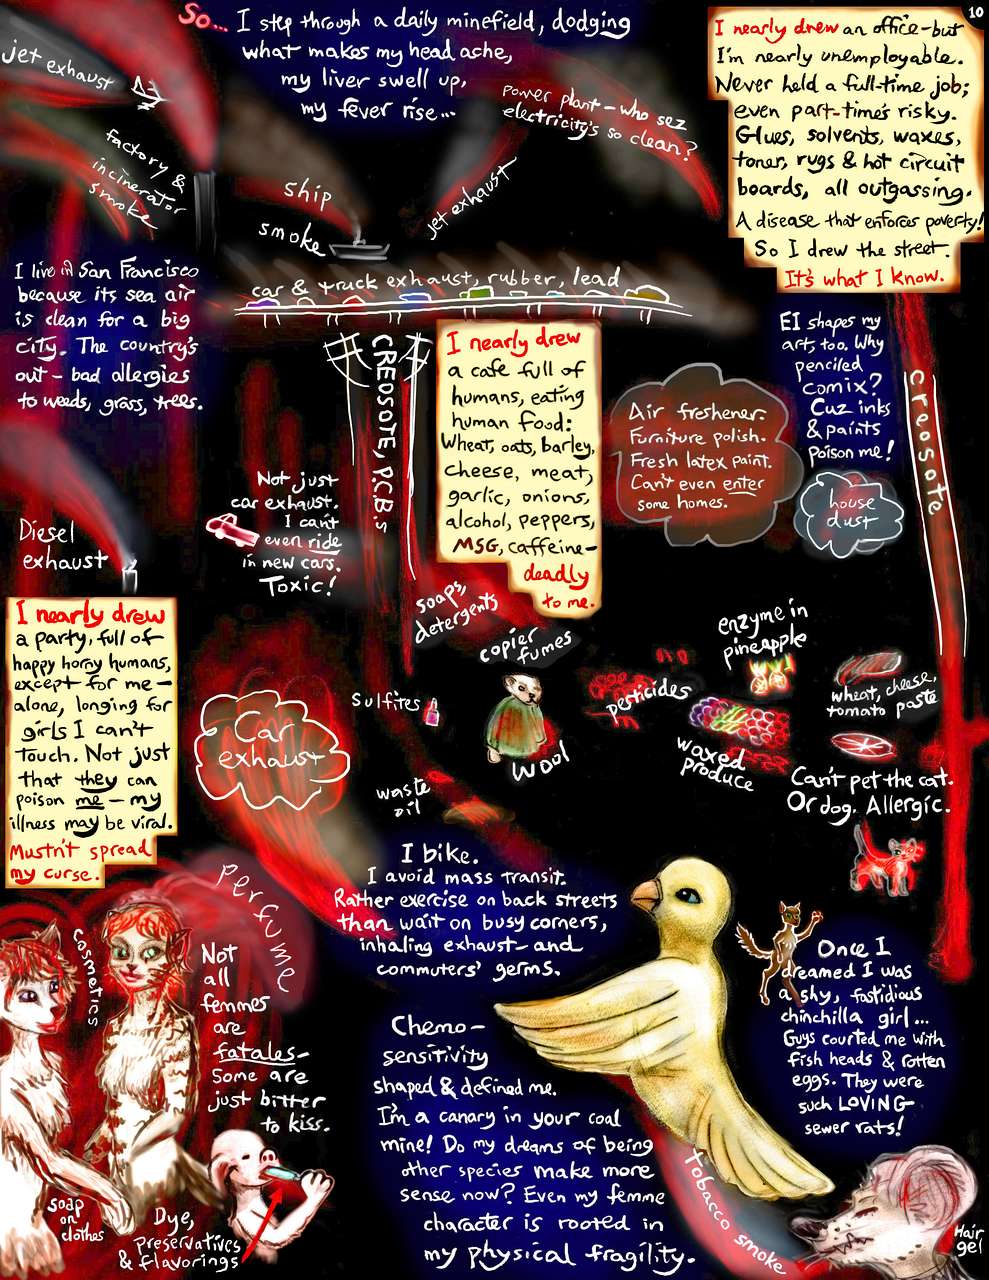 10
So... I step through a daily minefield, dodging
what makes my head ache,
my liver swell up,
my fever rise...
jet exhaust
factory &
incinerator
smoke
ship
smoke
jet exhaust
Power plant - who sez
electricity's so clean?
I nearly drew an office - but
I'm nearly unemployable.
Never held a full-time job;
even part-time's risky.
Glues, solvents, waxes,
toner, rugs & hot circuit
boards, all outgassing.
A disease that enforces poverty!
So I drew the street.
It's what I know.
car & truck exhaust, rubber, lead
I live in San Francisco
because its sea air
is clean for a big
city. The country's
out - bad allergies
to weeds, grass, trees.
CREOSOTE, P.C.B.s
I nearly drew
a cafe full of
humans, eating
human food:
Wheat, oats, barley,
cheese, meat,
garlic, onions,
alcohol, peppers,
MSG, caffeine -
deadly
to me.
Air freshener.
Furniture polish.
Fresh latex paint.
Can't even enter
some homes.
EI shapes my
art, too. Why
penciled
comix?
Cuz inks
& paints
poison me!
house
dust
creosote
Diesel
exhaust
Not just
car exhaust.
I can't
even ride
in new cars.
Toxic!
I nearly drew
a party, full of
happy horny humans,
except for me -
alone, longing for
girls I can't
touch. Not just
that they can
poison me - my
illness may be viral.
Mustn't spread
my curse.
Car
exhaust
soaps,
detergents
copier
fumes
sulfites
wool
pesticides
enzyme in
pineapple
waxed
produce
wheat, cheese,
tomato paste
Can't pet the cat.
Or dog. Allergic.
waste
oil
I bike.
I avoid mass transit.
Rather exercise on back streets
than wait on busy corners,
inhaling exhaust - and
commuters' germs.
perfume
Cosmetics
Not
all
femmes
are
fatales -
Some are
just bitter
to kiss.
soap
on
clothes
Dye,
preservatives
& flavorings
Chemo-
sensitivity
shaped & defined me.
I'm a canary in your coal
mine! Do my dreams of being
other species make more
sense now? Even my femme
character is rooted in
my physical fragility.
Once I
dreamed I was
a shy, fastidious
chinchilla girl...
Guys courted me with
fish heads & rotten
eggs. They were
such LOVING
sewer rats!
Tobacco smoke
Hair
gel